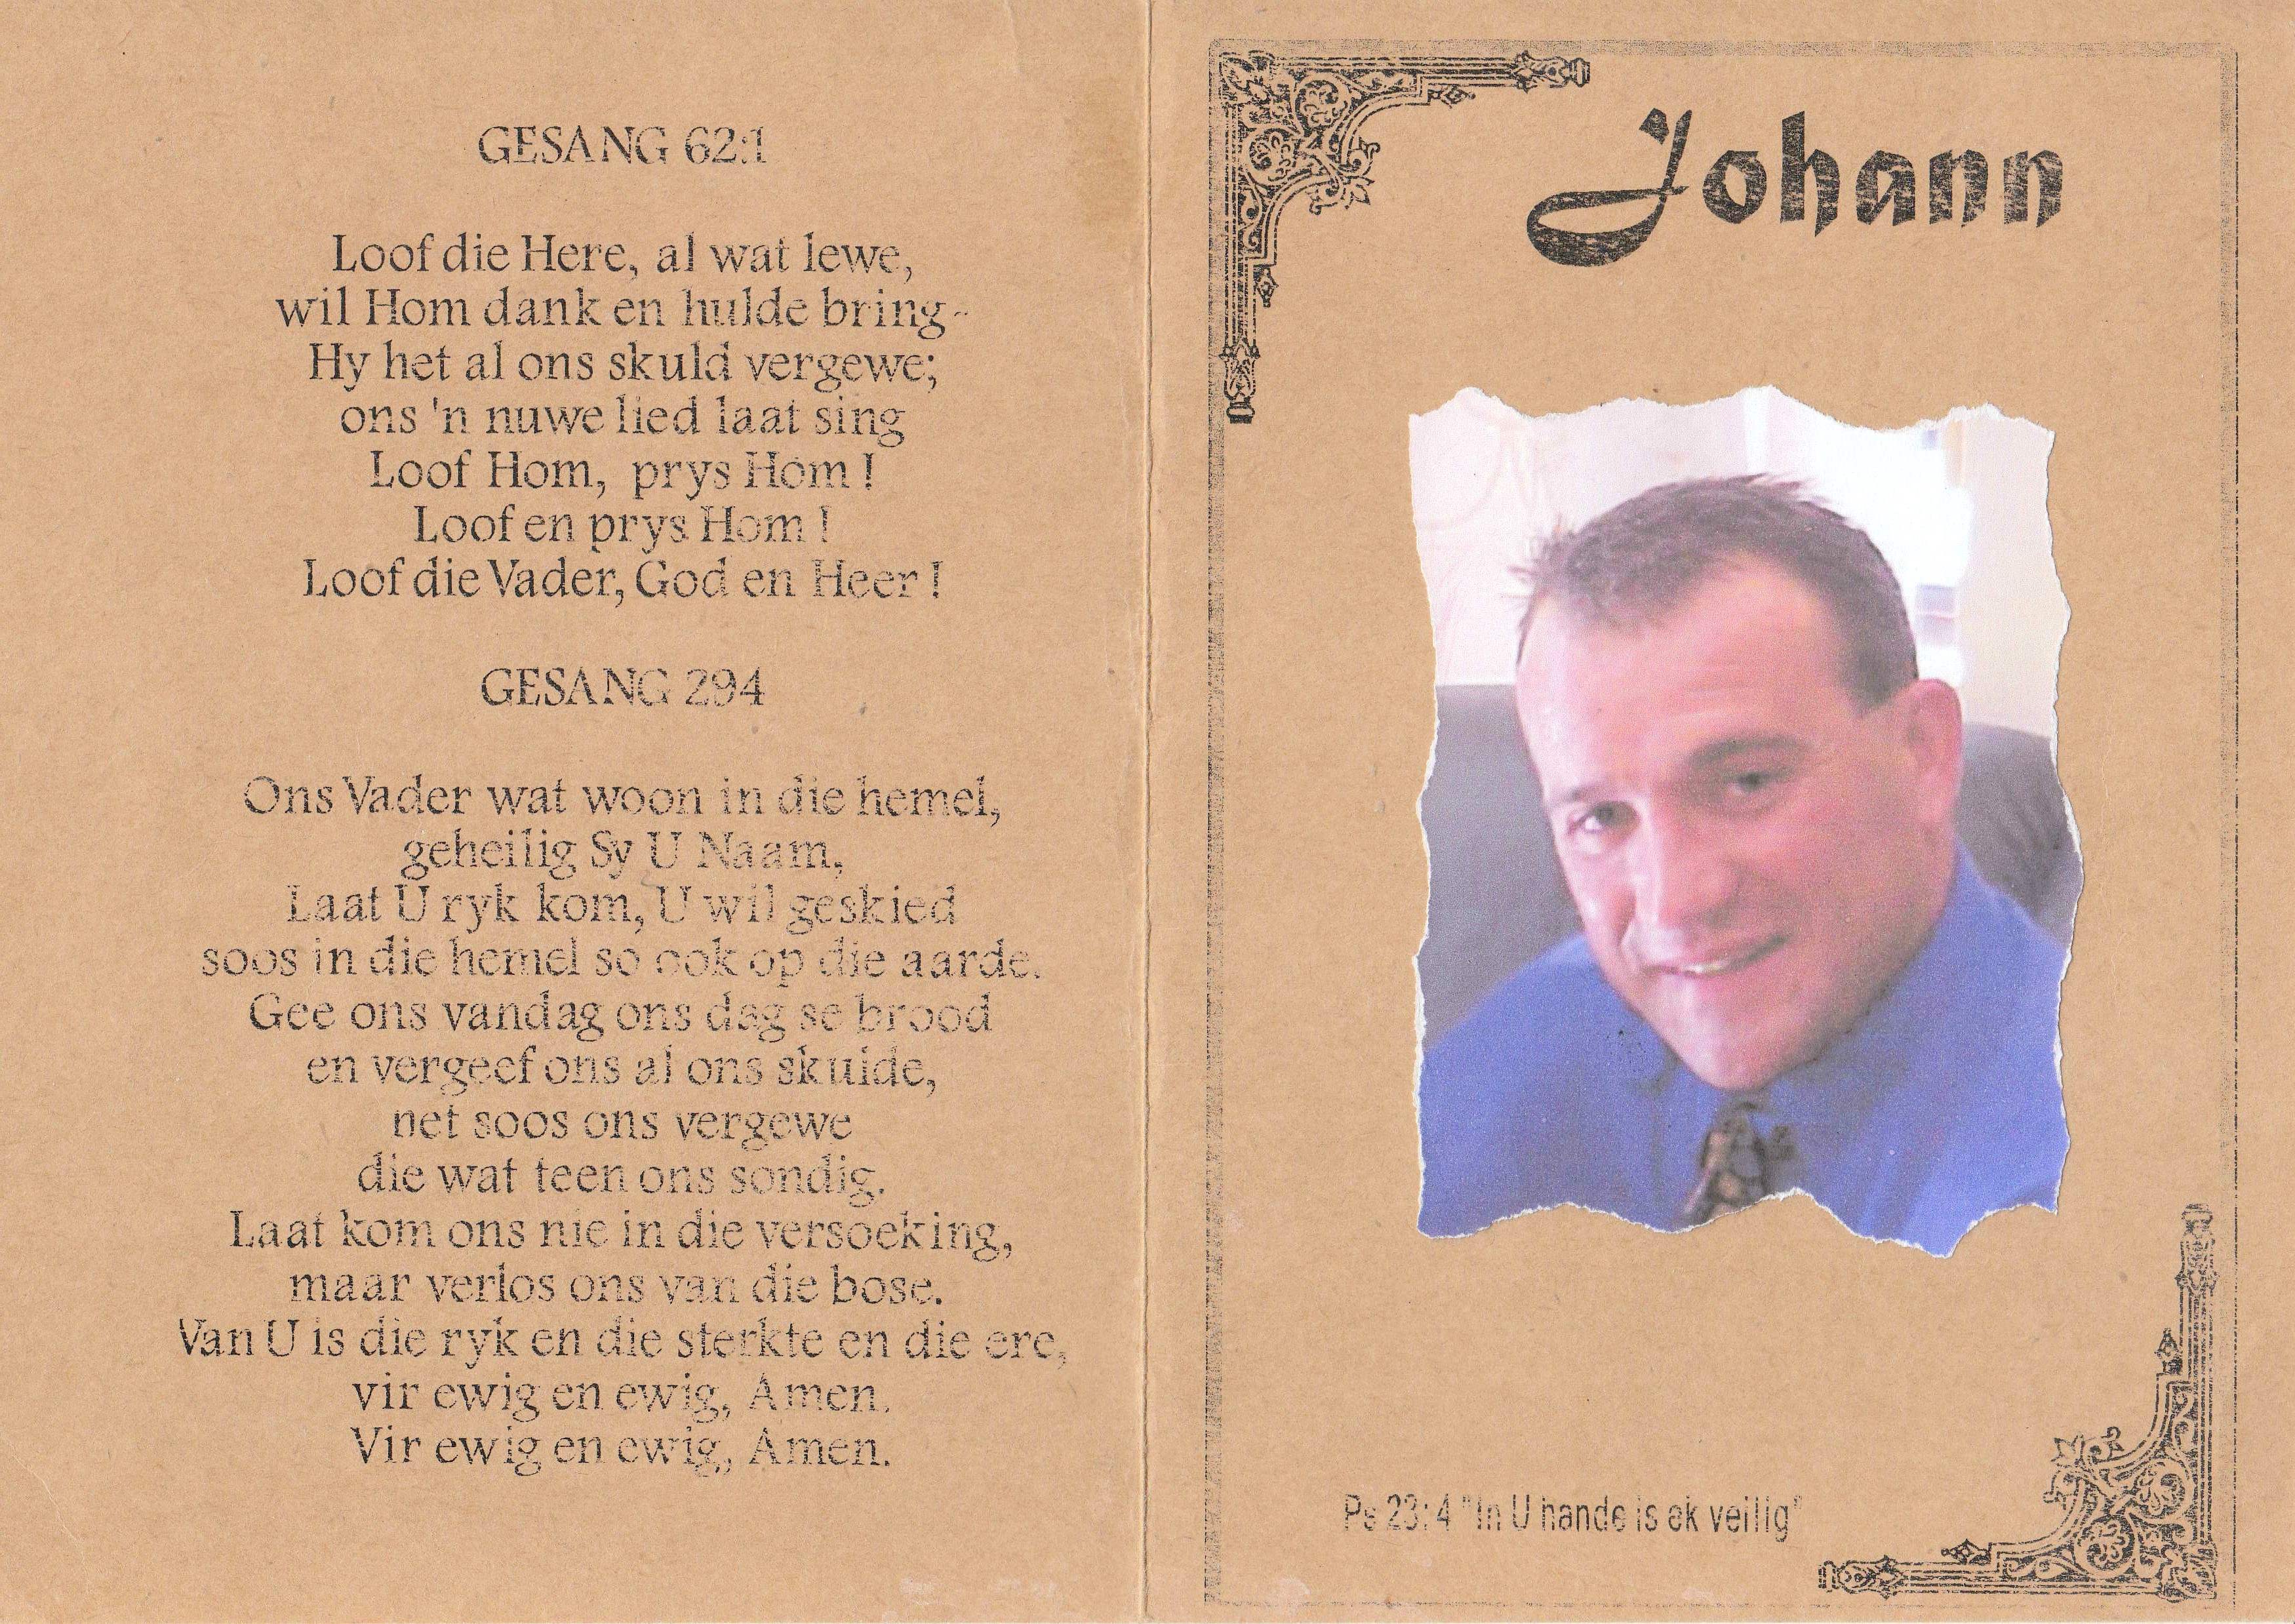 GESANG 62:1
Loof die Here, al wat lewe,
wil Hom dank en hulde bring-
Hy het al ons skuld vergewe;
ons 'n nuwe lied laat sing
Loof Hom, prys Hom !
Loof en prys Hom !
Loof die Vader, God en Heer !
GESANG 294
Ons Vader wat woon in die hemel,
geheilig Sy U Naam,
Laat U ryk kom, U wil geskied
soos in die hemel so ook op die aarde.
Gee ons vandag ons dag se brood
en vergeef ons al ons skulde,
net soos ons vergewe
die wat teen ons sondig.
Laat kom ons nie in die versoeking,
maar verlos ons van die bose.
Van U is die ryk en die sterkte en die ere,
vir ewig en ewig, Amen.
Vir ewig en ewig, Amen.
Johann
Ps 23:4 "In U hande is ek veilig"